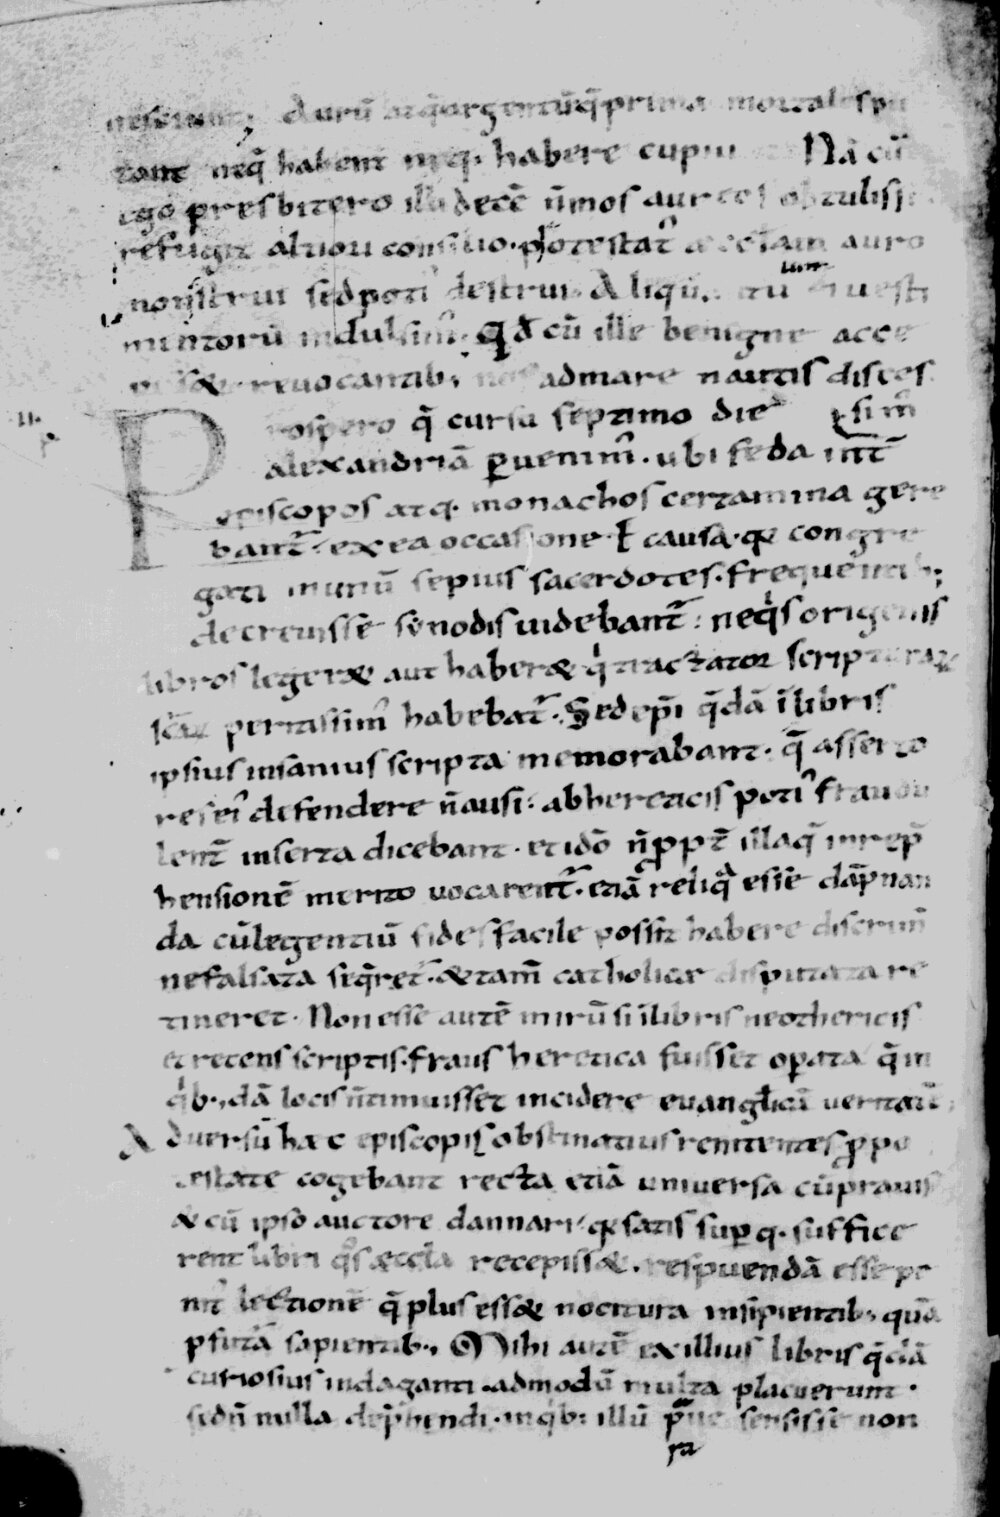 nesciunt; Aurū atq̄ argentūq̄ prima mortales pu
tant neq̄ habent neq. habere cupiu Nā cū
ego presbitero illi decē n̄mos aureos obtulisse
refugit altiori consilio. potestatꝰ æccl̄am auro
nonstrui sed potiꝰ destrui. Aliqū tū uesti
lum
mentorū indulsimꝰ. Qd̄ cū ille benigne acce
piss& reuocantib; nos ad mare nautis disces
Prospero q̄ cursu septimo die simꝰ
II.
alexandriā ꝑuenimꝰ. ubi feda int̄
episcopos atq. monachos certamina gere
bant̄. ex ea occasione ł causa. qæ congre
gati inunū sepius sacerdotes. frequentib;
decreuisse synodis uidebant̄. neqͥs origenis
libros leger& aut haber& qͥ tractator scripturaꝝ
sc̄aꝝ peritissimꝰ habebat̄. Sed ep̄i q̄dā ī libris
ipsius insanius scripta memorabant. q̄ asserto
res eiꝰ defendere n̄ ausi. ab hereticis potiꝰ fraudu
lent̄ inserta dicebant. et idō n̄ ꝓpt̄ illa q̄ inrep̄
hensionē merito uocarent̄. etiā reliqͣ esse dāpnan
da cū legentiū fides facile possit habere discrim̄
ne falsata seq̄ret̄. & tam̄ catholicæ disputata re
tineret. Non esse autē mirū si ī libris neothericis
et recens scriptis. fraus heretica fuisset oꝑata q̄ in
qͥb.,dā locis n̄ timuisset incidere euangl̄icā ueritatē;
Aduersū hæc episcopi obstinatius renitentes ꝓ po
testate cogebant recta etiā uniuersa cū prauis
& cū ipso auctore dannari. qæ satis suꝑq. suffice
rent libri qͦs æccl̄a recepiss&. respuendā esse pe
nitꝰ lectionē q̄ plus ess& nocitura insipientib; quā
ꝓfutā sapientib., Mihi autē ex illius libris q̄dā
curiosius indaganti admodū multa placuerunt.
sed n̄nulla dep̄hendi. in qͥb; illū p̄ue sensisse non
ra